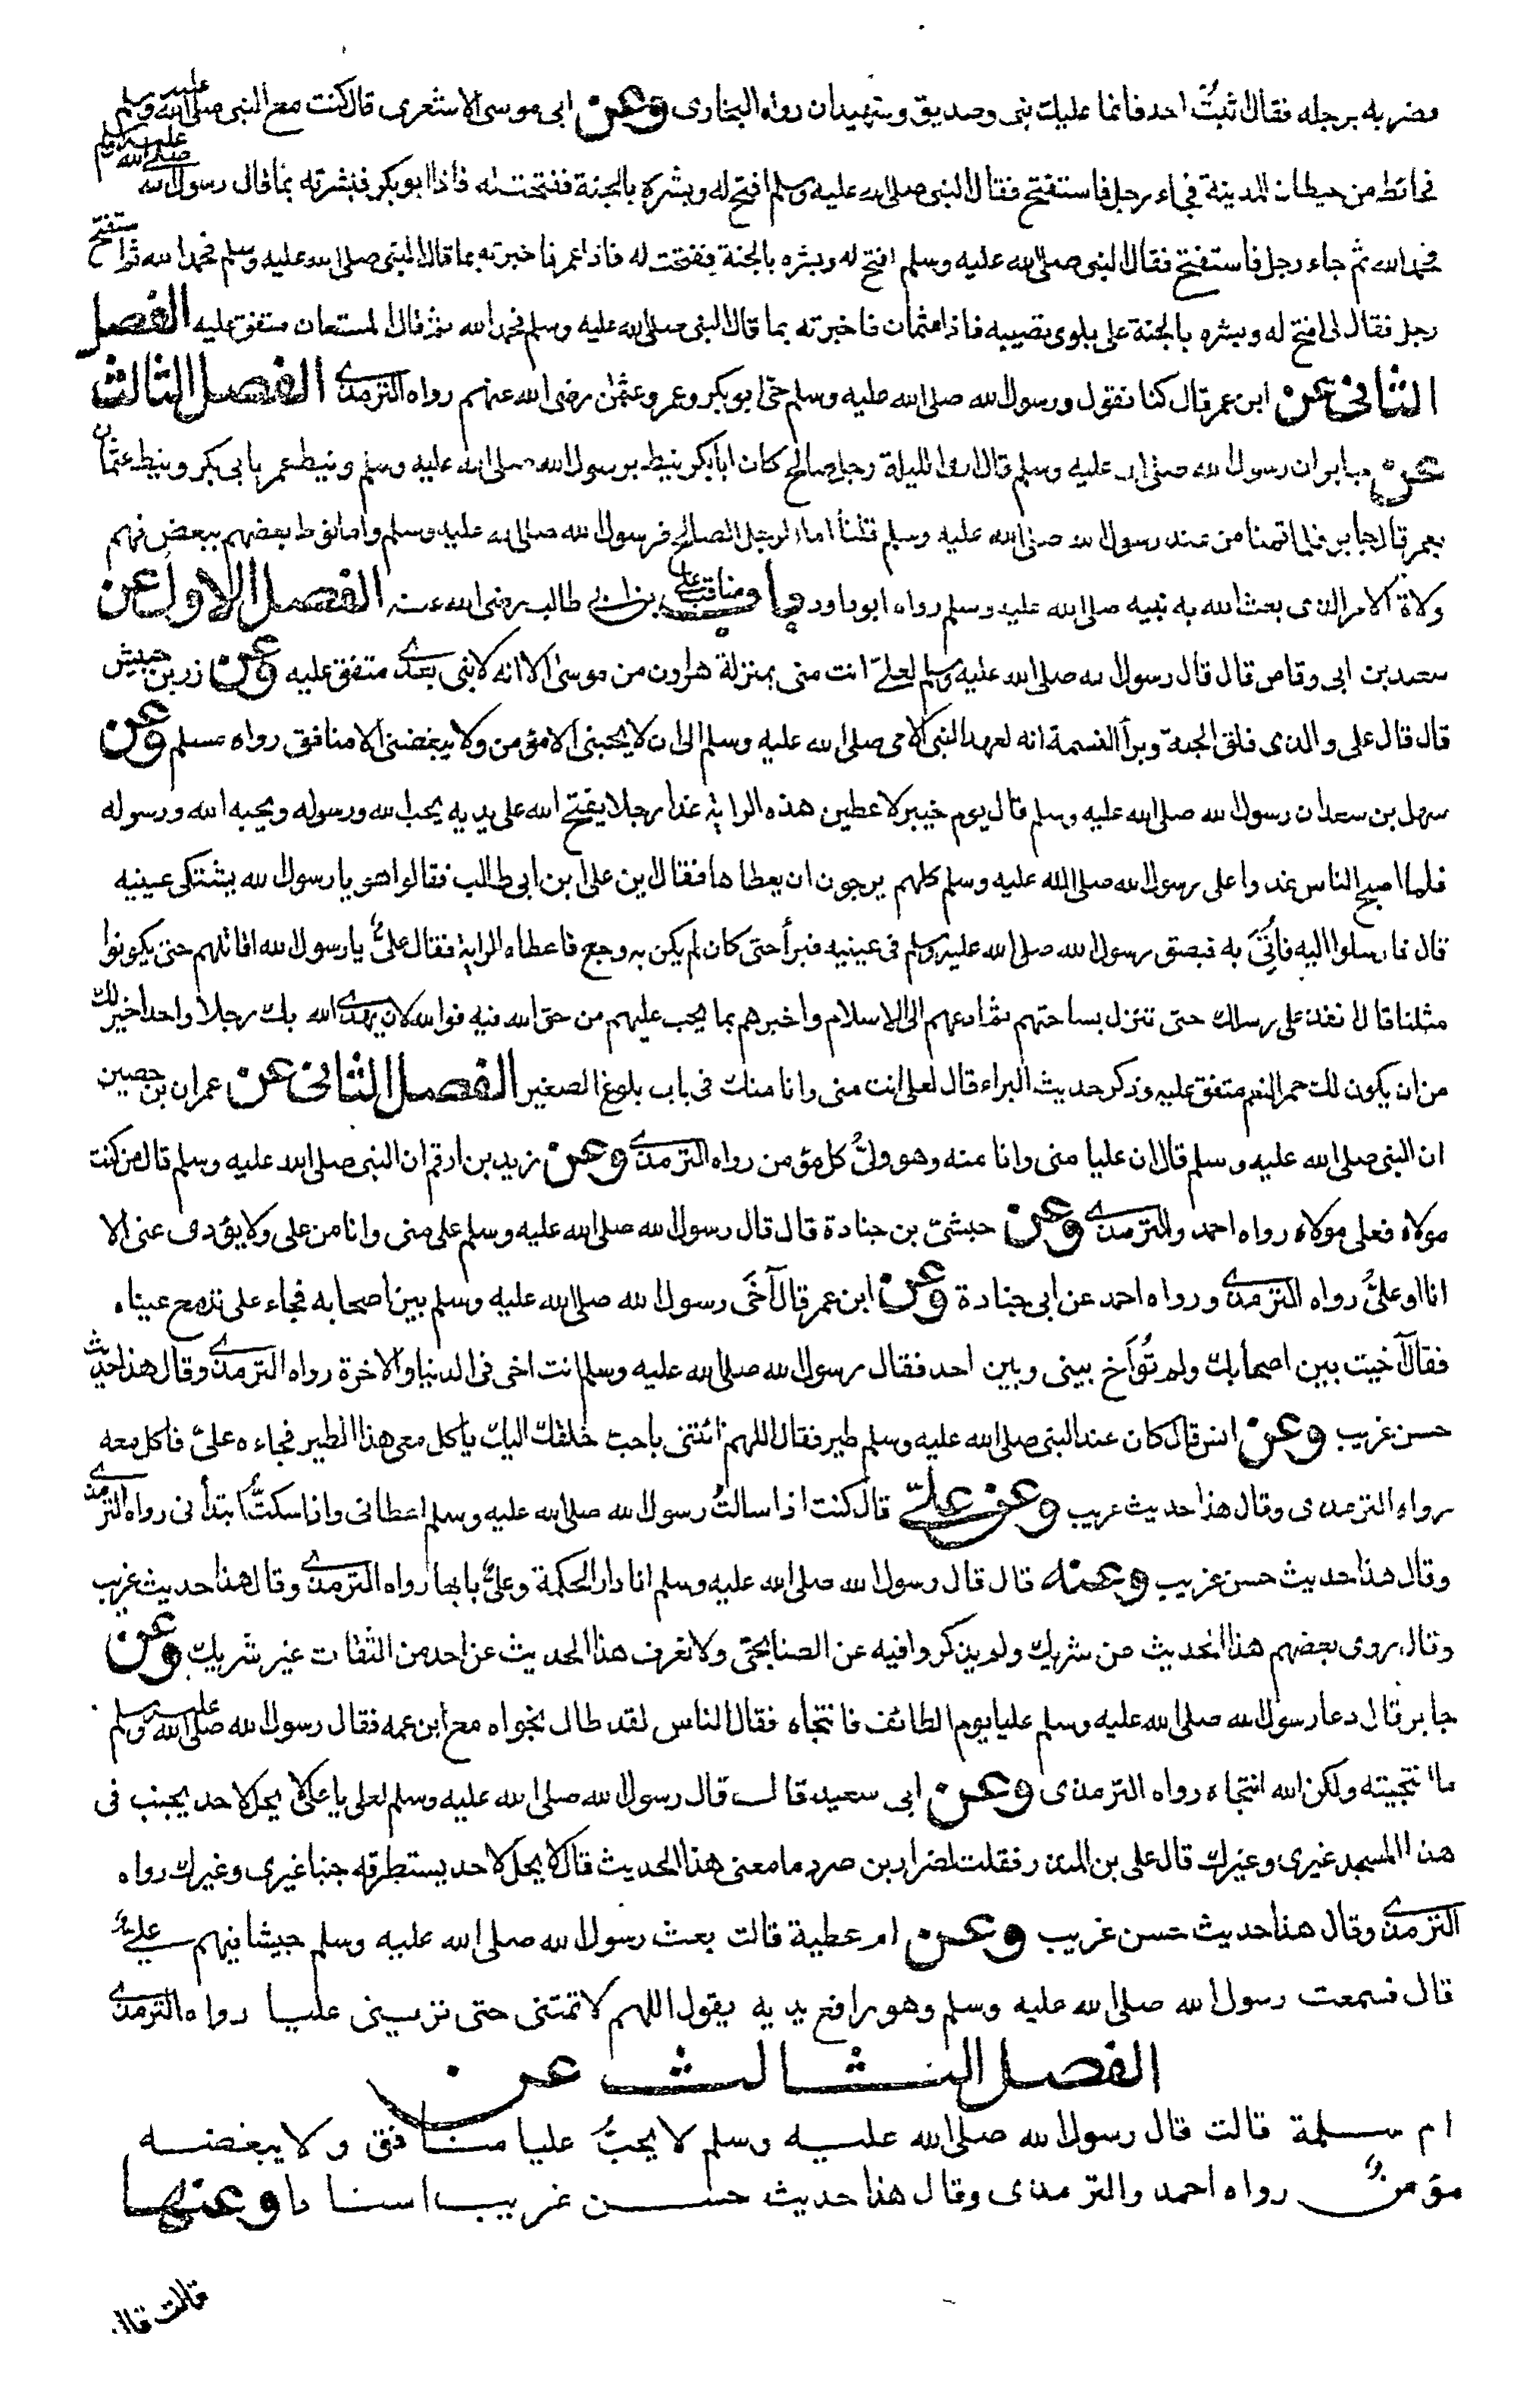 وضربه برجله فقال اثبتْ احد فانما عليك نبى وصديق وشهيدان رواه البخارى وعن ابى موسى الاشعرى قال كنت مع النبى صلى الله عليه وسلم
فى حائط من حيطان المدينة فجاء رجل فاستفتح فقال النبى صلى الله عليه وسلم افتح له وبشره بالجنة ففتحت له فاذا ابو بكر فبشرته بما قال رسول الله صلى الله عليه وسلم
فحمد الله ثم جاء رجل فاستفتح فقال النبى صلى الله عليه وسلم افتح له وبشره بالجنة ففتحت له فاذا عمر فاخبرته بما قال النبى صلى الله عليه وسلم فحمد الله ثم استفتح
رجل فقال لى افتح له وبشره بالجنة على بلوى تصيبه فاذا عثمان فاخبرته بما قال النبى صلى الله عليه وسلم فحمد الله ثم قال المستعان متفق عليه الفصل
الثانى عن ابن عمر قال كنا نقول ورسول الله صلى الله عليه وسلم حىّ ابو بكر وعمر وعثمٰن رضى الله عنهم رواه الترمذى الفصل الثالث
عن جابر ان رسول الله صلى الله عليه وسلم قال ارى الليلة رجل صالح كان ابا بكر نيط برسول الله صلى الله عليه وسلم ونيط عمر بابى بكر ونيط عثمان
بعمر قال جابر فلما قمنا من عند رسول الله صلى الله عليه وسلم قلنا اما الرجل الصالح فرسول الله صلى الله عليه وسلم واما نوط بعضهم ببعض فهم
ولاة الامر الذى بعث الله به نبيه صلى الله عليه وسلم رواه ابو داود باب مناقب على بن ابى طالب رضى الله عنه الفصل الاول عن
سعد بن ابى وقاص قال قال رسول الله صلى الله عليه وسلم لعلىّ انت منى بمنزلة هارون من موسىٰ الا انه لا نبى بعدى متفق عليه وعن زر بن حبيش
قال قال على والذى فلق الحبة وبرأ النسمة انه لعهد النبى الامى صلى الله عليه وسلم الى ان لا يحبنى الا مؤمن ولا يبغضنى الا منافق رواه مسلم وعن
سهل بن سعد ان رسول الله صلى الله عليه وسلم قال يوم خيبر لاعطين هذه الراية غدا رجلا يفتح الله على يديه يحب الله ورسوله ويحبه الله ورسوله
فلما اصبح الناس غدوا على رسول الله صلى الله عليه وسلم كلهم يرجون ان يعطاها فقال اين على ابن ابى طالب فقالوا هو يا رسول الله يشتكى عينيه
قال فارسلوا اليه فاُتِىَ به فبصق رسول الله صلى الله عليه وسلم فى عينيه فبرأ حتى كان لم يكن به وجع فاعطاه الراية فقال علىٌّ يا رسول الله اقاتلهم حتى يكونوا
مثلنا قال انفذ على رسلك حتى تنزل بساحتهم ثم ادعهم الى الاسلام واخبرهم بما يجب عليهم من حق الله فيه فوالله لان يهدى الله بك رجلا واحدا خير لك
من ان يكون لك حمر النعم متفق عليه وذكر حديث البراء قال لعلى انت منى وانا منك فى باب بلوغ الصغير الفصل الثانى عن عمران بن حصين
ان النبى صلى الله عليه وسلم قال ان عليا منى وانا منه وهو ولىُّ كل مؤمن رواه الترمذى وعن زيد بن ارقم ان النبى صلى الله عليه وسلم قال من كنت
مولاه فعلى مولاه رواه احمد والترمذى وعن حبشىّ بن جنادة قال قال رسول الله صلى الله عليه وسلم على منى وانا من على ولا يؤدى عنى الا
انا او علىٌّ رواه الترمذى ورواه احمد عن ابى جنادة وعن ابن عمر قال آخَى رسول الله صلى الله عليه وسلم بين اصحابه فجاء على تدمع عيناه
فقال آخيت بين اصحابك ولم تُؤَاخِ بينى وبين احد فقال رسول الله صلى الله عليه وسلم انت اخى فى الدنيا والآخرة رواه الترمذى وقال هذا حديث
حسن غريب وعن انس قال كان عند النبى صلى الله عليه وسلم طير فقال اللهم ائتنى باحب خلقك اليك ياكل معى هذا الطير فجاءه علىٌّ فاكل معه
رواه الترمذى وقال هذا حديث غريب وعن علىّ قال كنت اذا سالتُ رسول الله صلى الله عليه وسلم اعطانى واذا سكتُّ ابتدأنى رواه الترمذى
وقال هذا حديث حسن غريب وعنه قال قال رسول الله صلى الله عليه وسلم انا دار الحكمة وعلىٌّ بابها رواه الترمذى وقال هذا حديث غريب
وقال روى بعضهم هذا الحديث عن شريك ولم يذكروا فيه عن الصنابحىّ ولا نعرف هذا الحديث عن احد من الثقات غير شريك وعن
جابر قال دعا رسول الله صلى الله عليه وسلم عليا يوم الطائف فانتجاه فقال الناس لقد طال نجواه مع ابن عمه فقال رسول الله صلى الله عليه وسلم
ما انتجيته ولكن الله انتجاه رواه الترمذى وعن ابى سعيد قال قال رسول الله صلى الله عليه وسلم لعلى يا على لا يحل لاحد يجنب فى
هذا المسجد غيرى وغيرك قال على بن المنذر فقلت لضرار بن صرد ما معنى هذا الحديث قال لا يحل لاحد يستطرقه جنبا غيرى وغيرك رواه
الترمذى وقال هذا حديث حسن غريب وعن ام عطية قالت بعث رسول الله صلى الله عليه وسلم جيشا فيهم علىٌّ
قال فسمعت رسول الله صلى الله عليه وسلم وهو رافع يديه يقول اللهم لا تمتنى حتى ترينى عليا رواه الترمذى
الفصل الثالث عن
ام سلمة قالت قال رسول الله صلى الله عليه وسلم لا يحبُّ عليا منافق ولا يبغضه
مؤمنٌ رواه احمد والترمذى وقال هذا حديث حسن غريب اسنادا وعنها
قالت قال